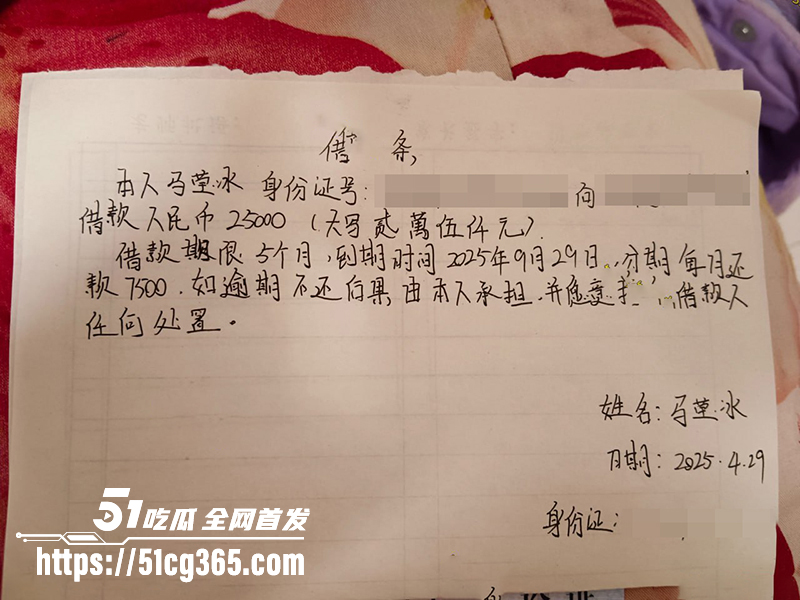 借条
本人马莹冰 身份证号: 向
借款人民币25000 (大写贰萬伍仟元).
借款期限5个月,到期时间2025年9月29日,分期每月还
款7500.如逾期不还后果由本人承担,并愿意 借款人
任何处置。
姓名:马莹冰
日期: 2025.4.29
身份证:
51吃瓜 全网首发
https://51cg365.com